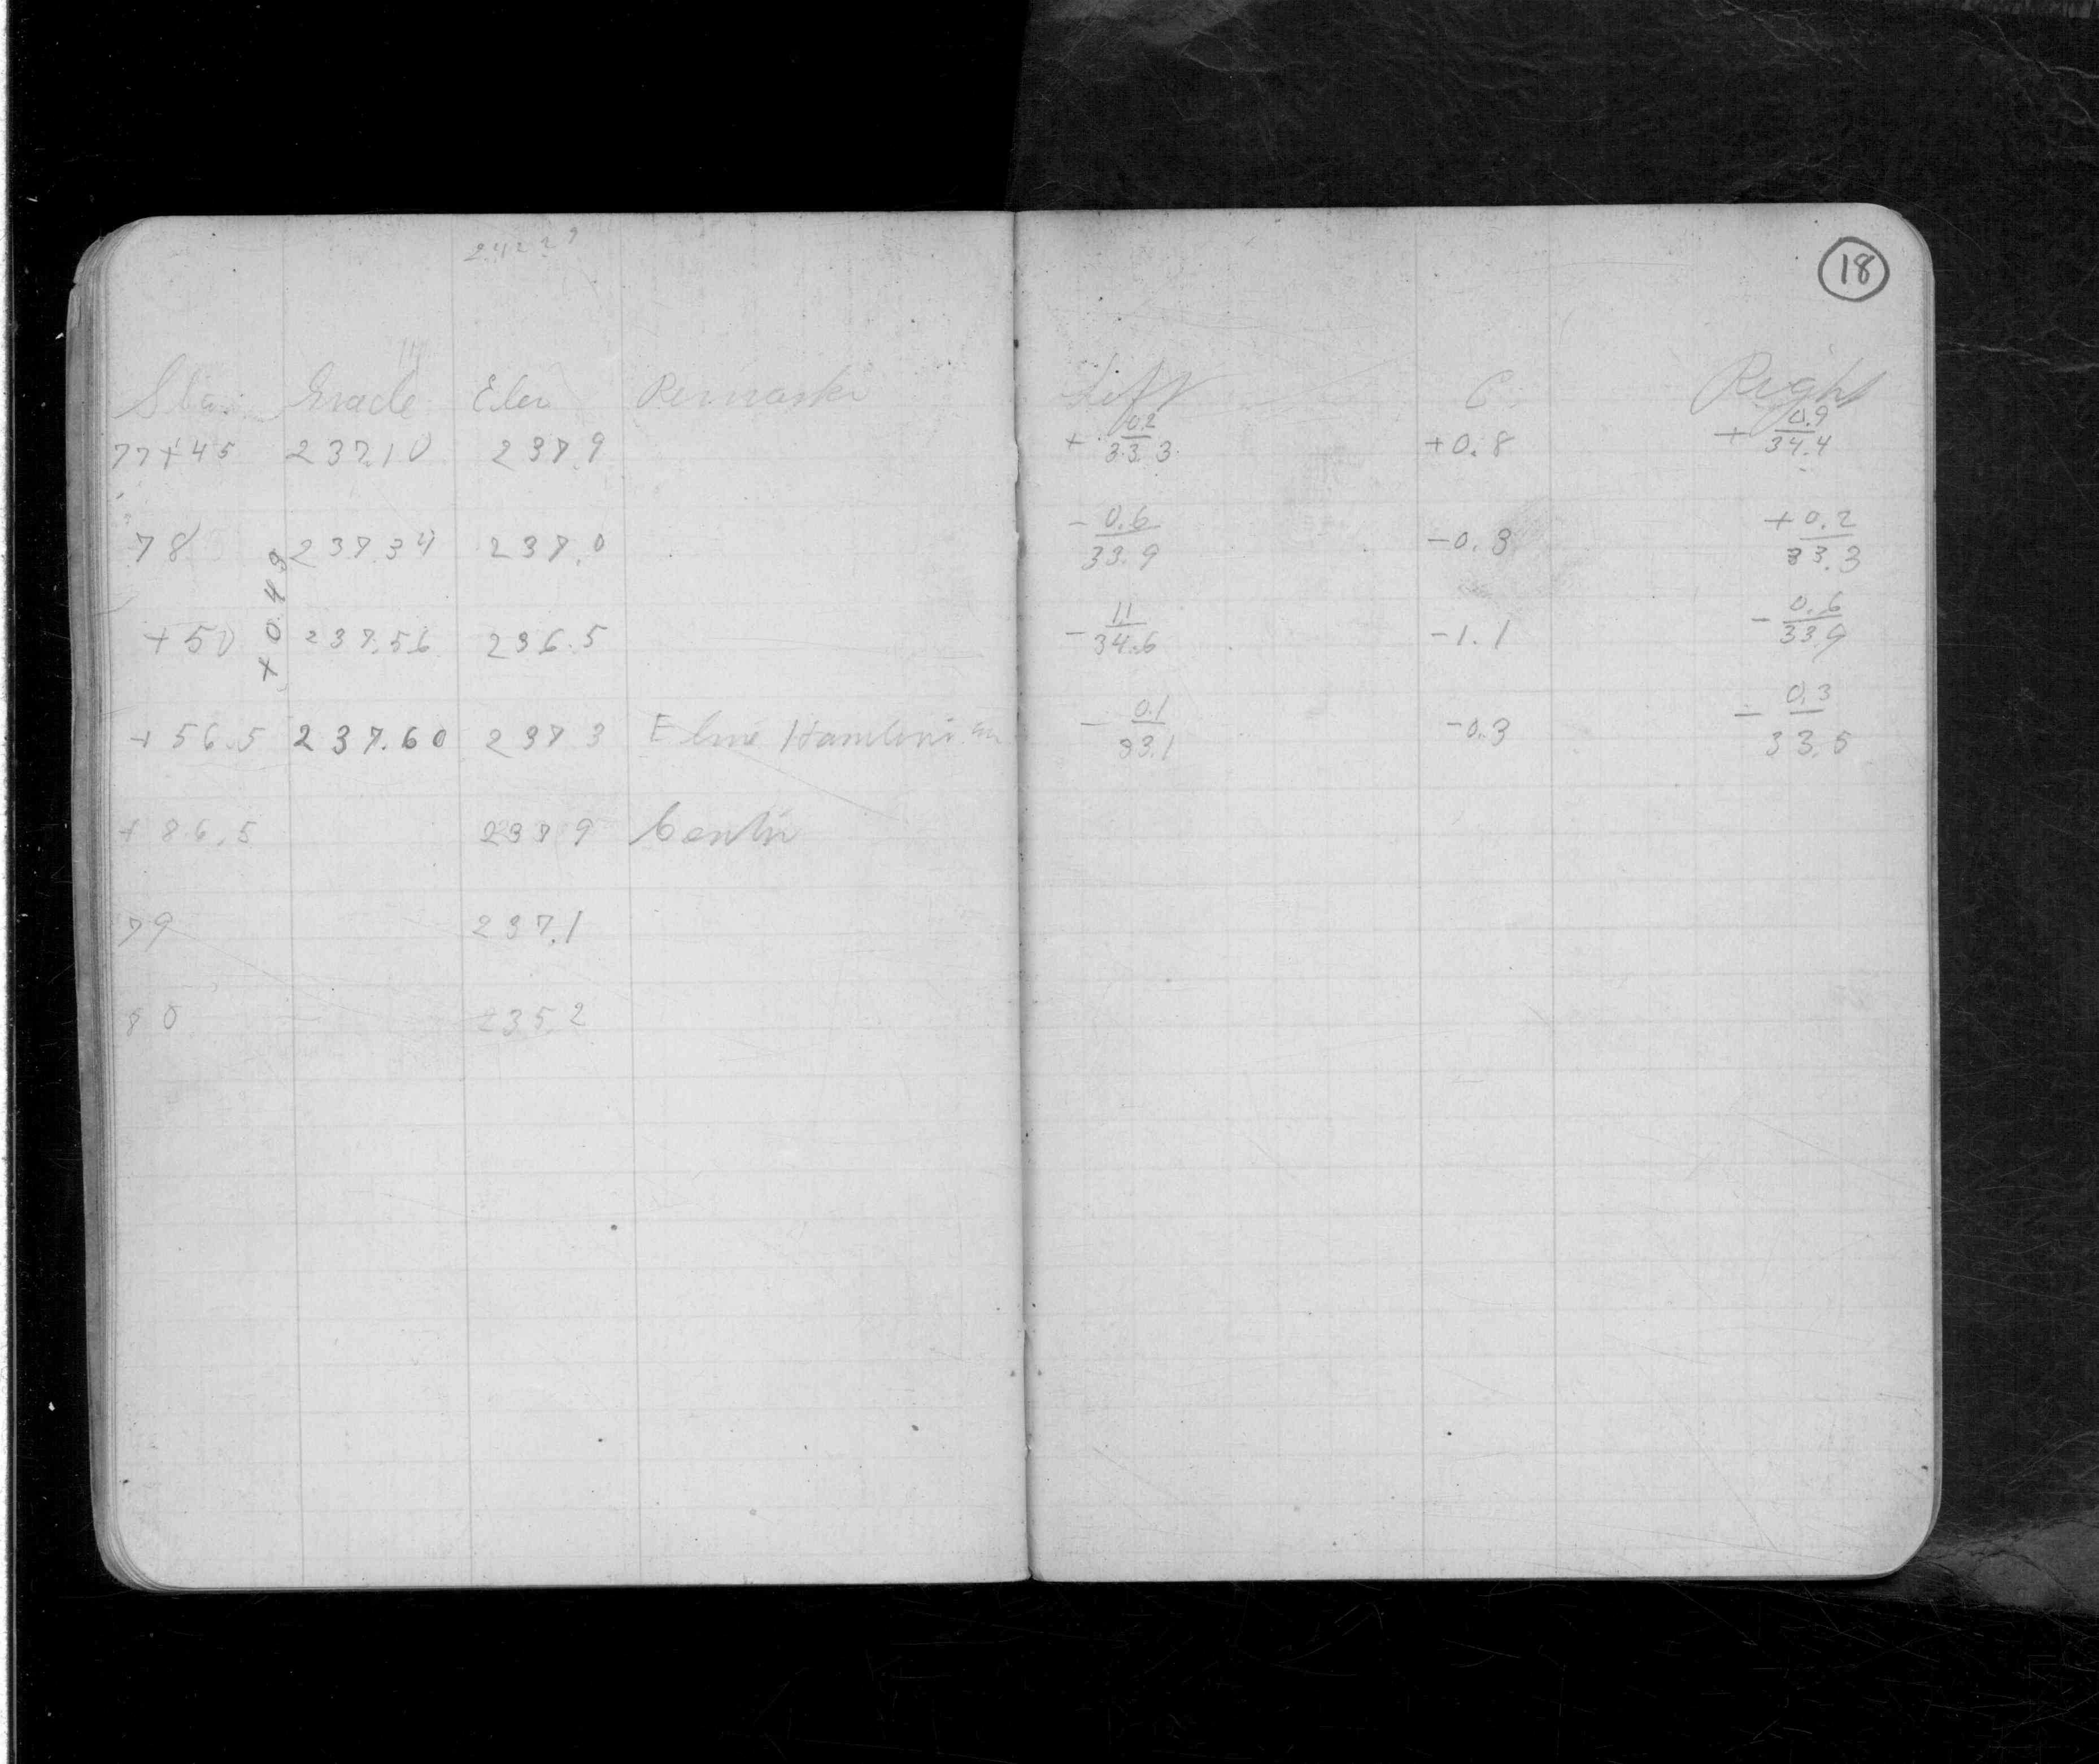 18
Sta. Grade Elev Remarks Left C. Right
77+45 237.10 237.9 + 0.2/33.3 +0.8 + 0.9/34.4
78 237.34 237.0 - 0.6/33.9 -0.3 + 0.2/33.3
+0.49
+50 237.56 236.5 - 1.1/34.6 -1.1 - 0.6/33.9
+56.5 237.60 237.3 E line Hamlin - 0.1/33.1 -0.3 - 0.3/33.5
+86.5 237.9 Center
79 237.1
80 235.2